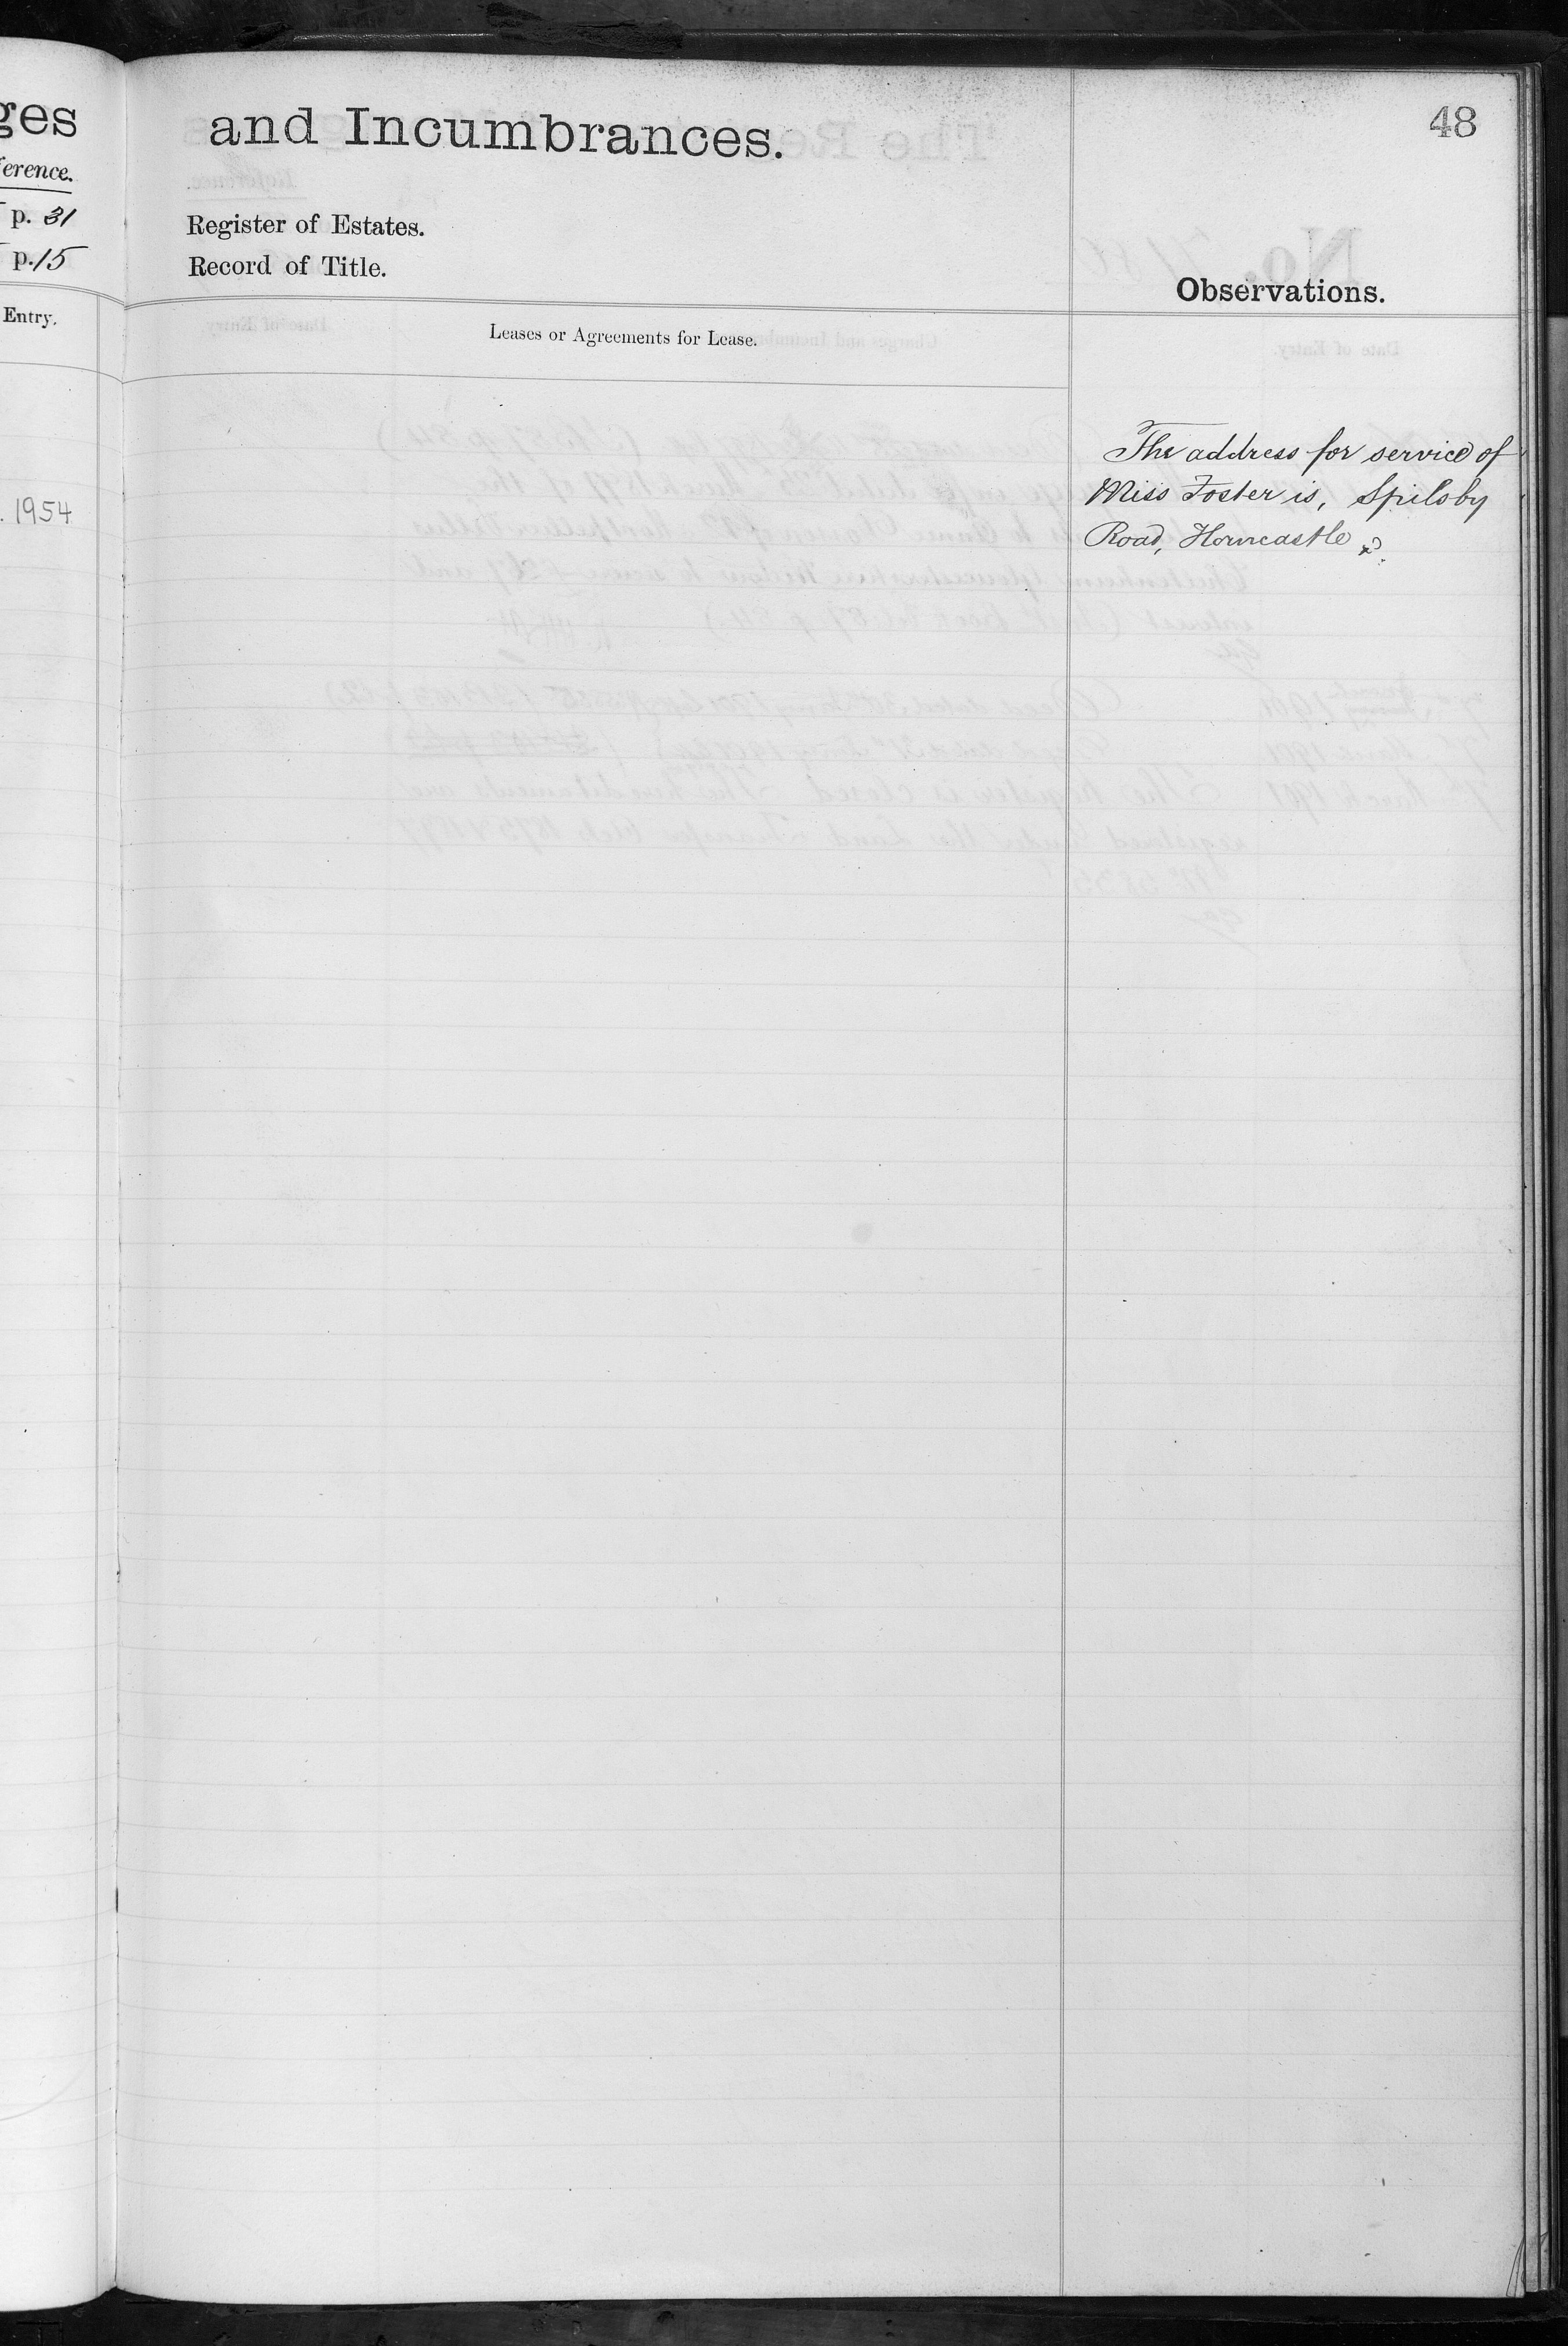 ges
ference.
p. 31
p. 15
Entry.
. 1954
and Incumbrances.
48
Register of Estates.
Record of Title.
Observations.
Leases or Agreements for Lease.
The address for service of
Miss Foster is, Spilsby
Road, Horncastle